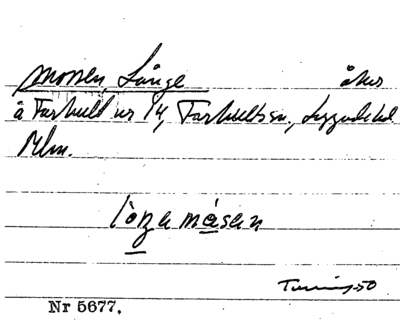 mossen, Långe åker
å Farhult nr 14, Farhults sn., Luggude hd
Mlm.
lòŋa mósan
Nr 5677.